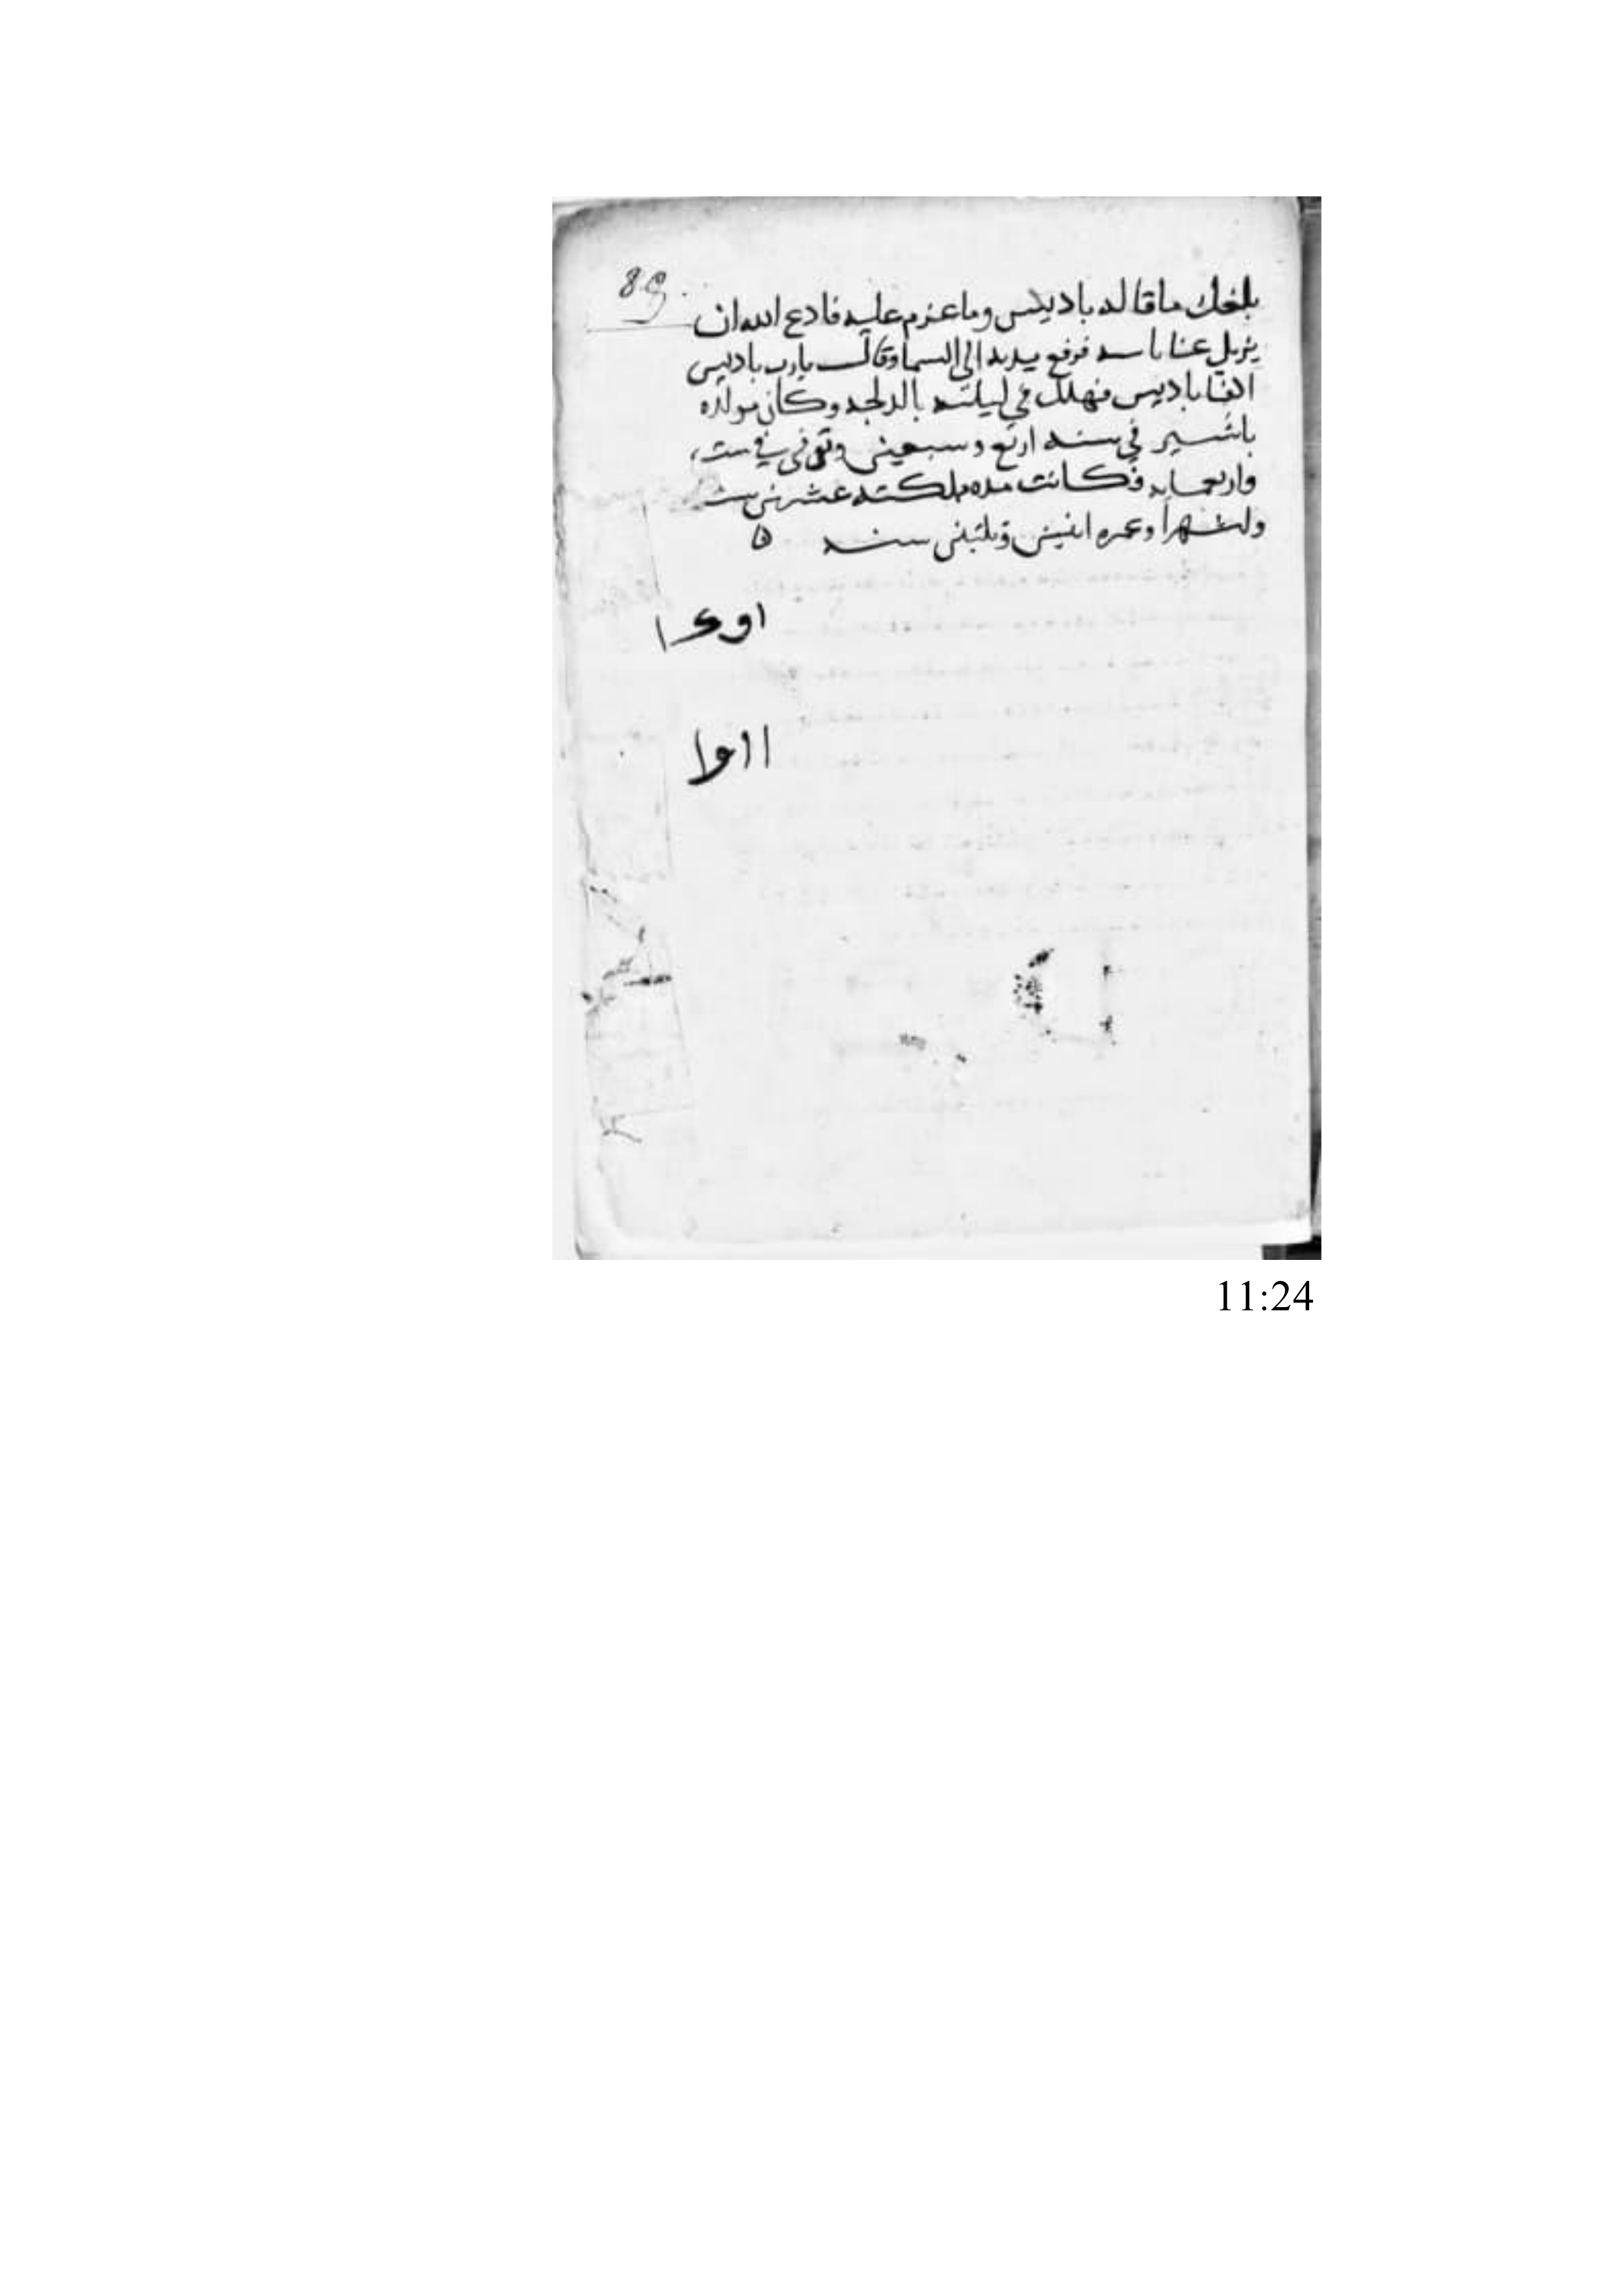 89
بلغك ما قاله باديس وما عزم عليه فادع الله ان
يزيل عنا باسه فرفع يديه الى السما وقال يارب باديس
اكفنا باديس فهلك في ليلته بالدبحه وكان مولده
باشير في سنه اربع وسبعين وتوفى في ست
واربعمايه فكانت مده مملكته عشرين سنه
وشهرا وعمره اثنين وثلثين سنه ه
11:24